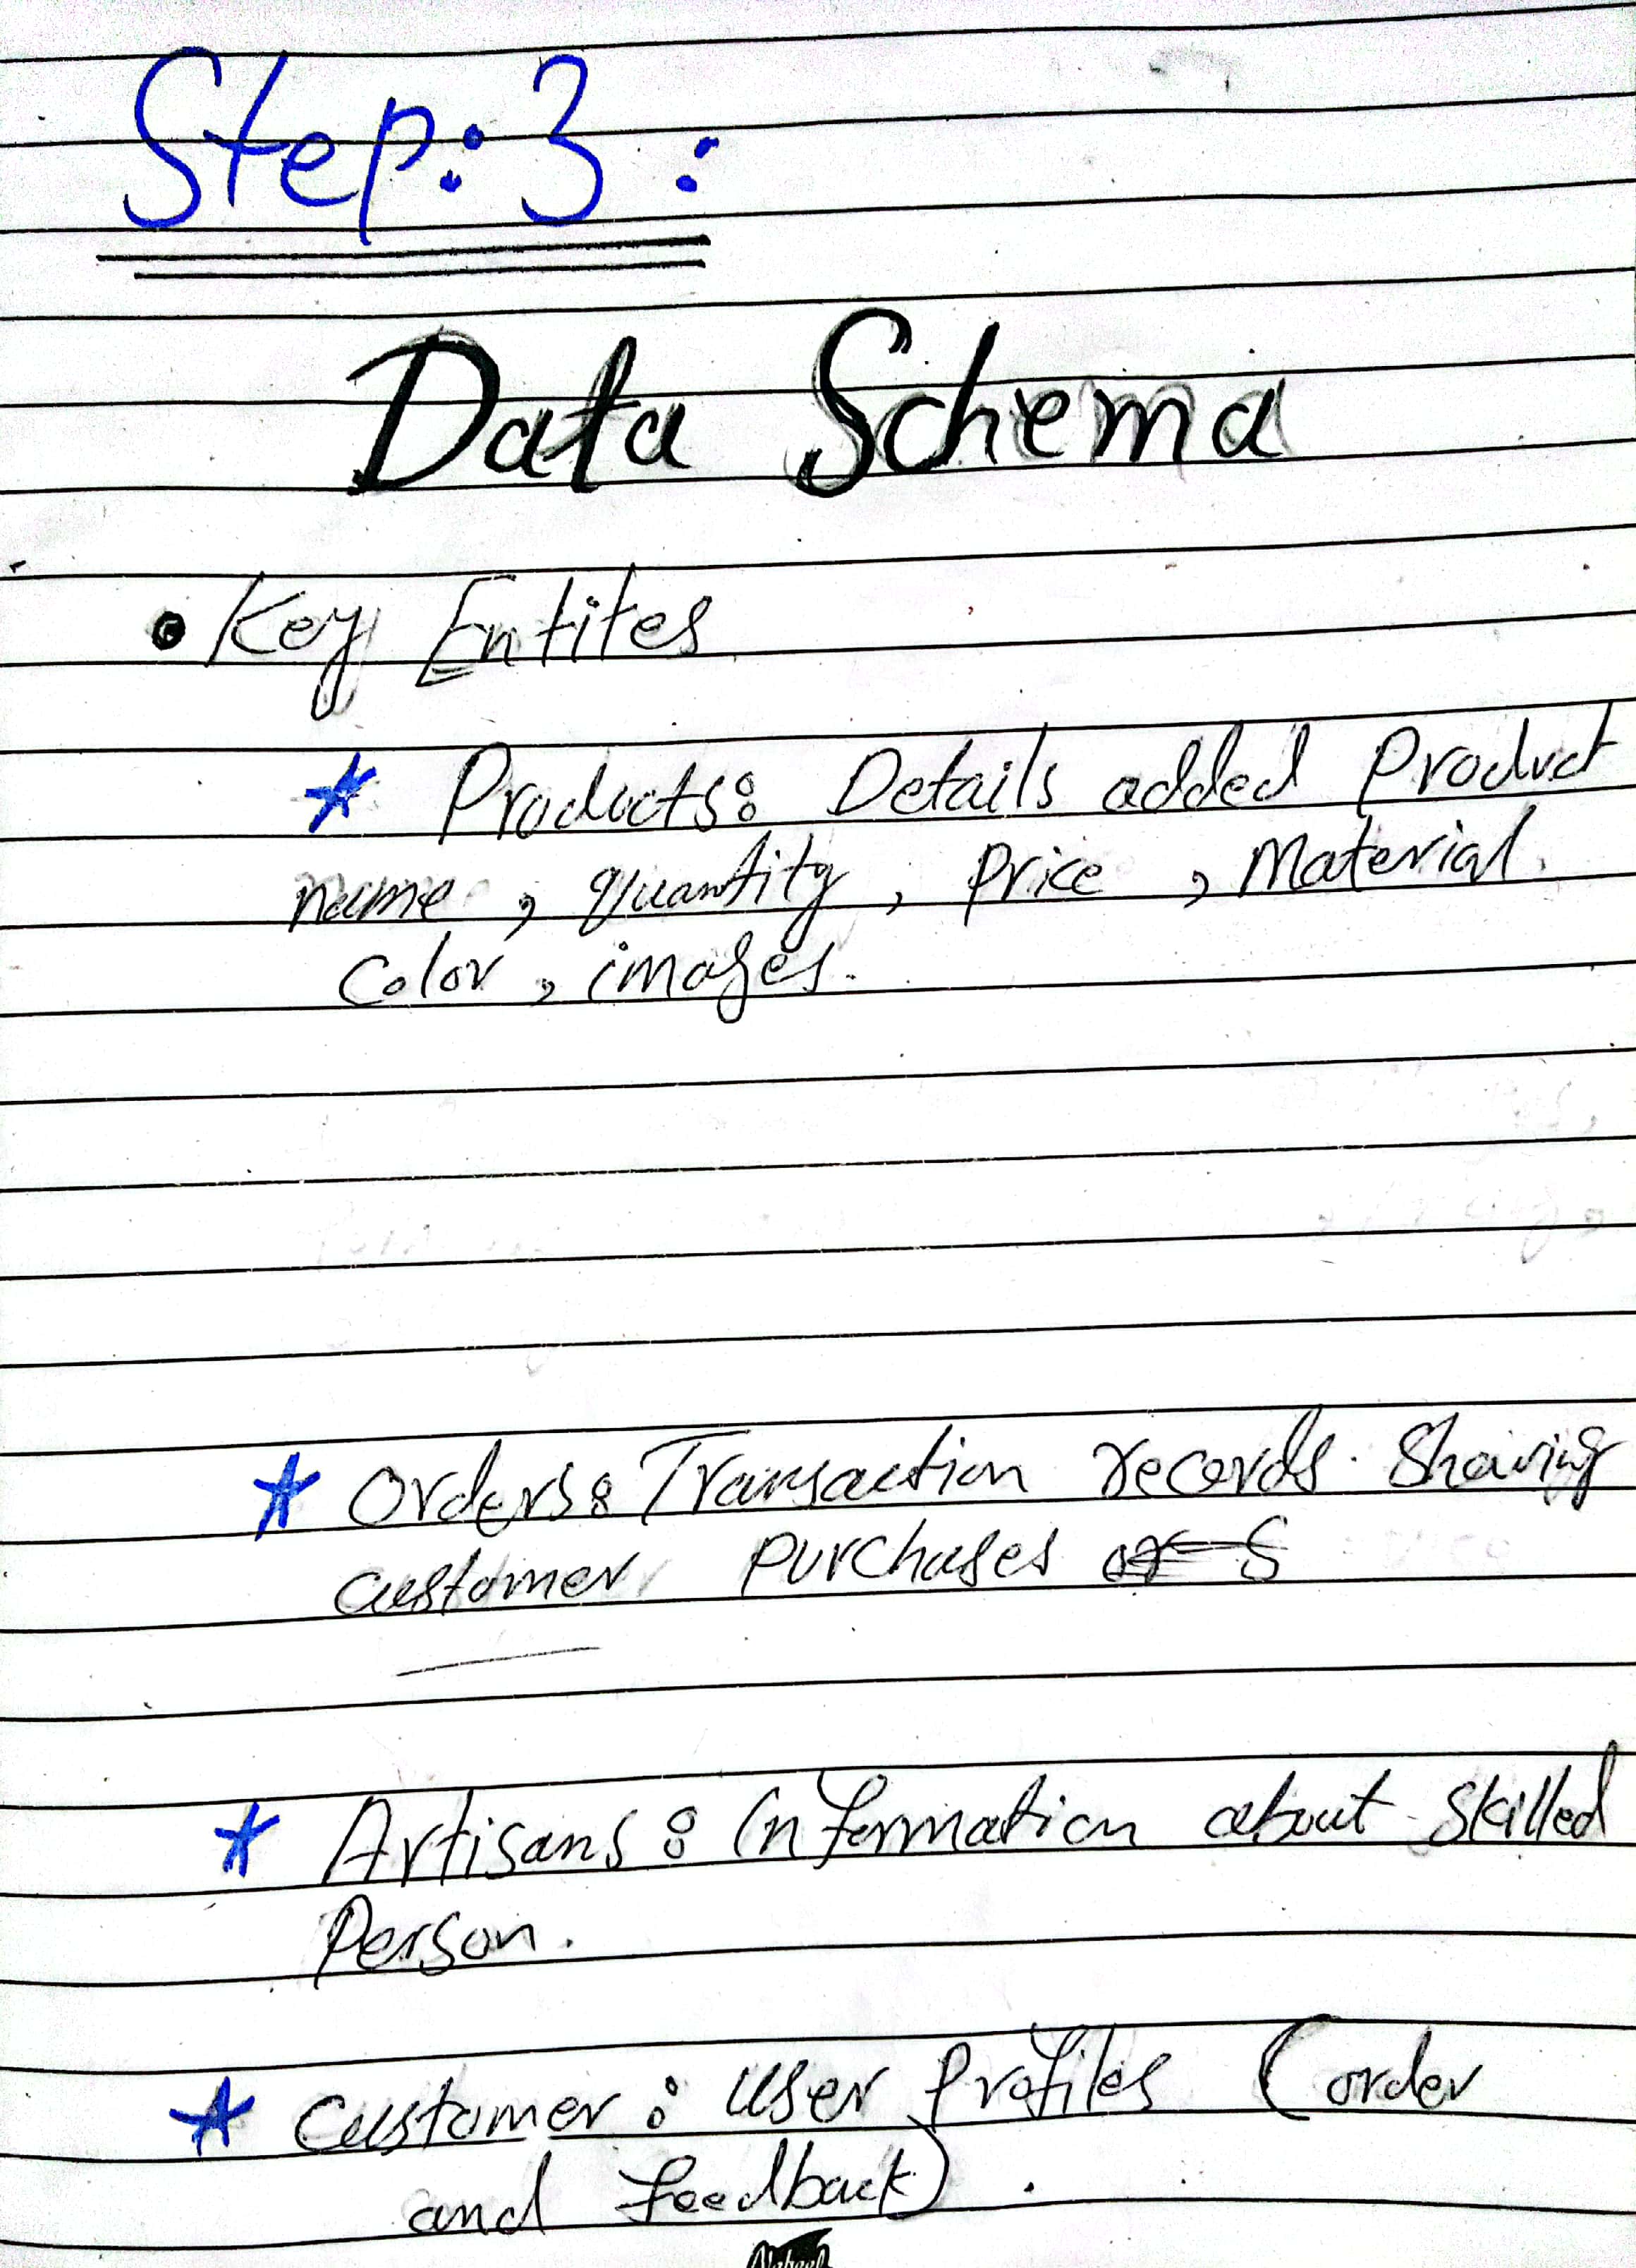 Step: 3 :
Data Schema
• Key Entites
* Products: Details added Product
name, quantity, Price, Material.
Color, images.
* Orders: Transaction records. Shoving
customer purchases
* Artisans: Information about skilled
Person.
* Customer: User Profiles (order
and feedback).